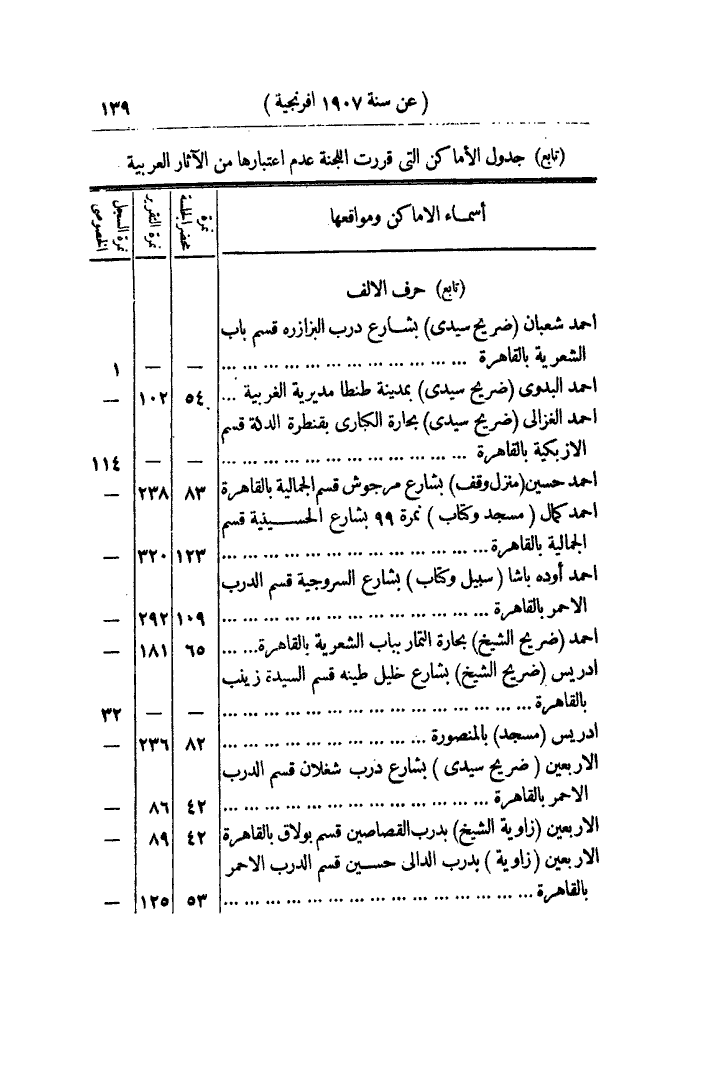 ١٣٩ (عن سنة ١٩٠٧ افرنجية)
(تابع) جدول الأماكن التى قررت اللجنة عدم اعتبارها من الآثار العربية
أسماء الاماكن ومواقعها | نمرة محضر الجلسة | نمرة التقرير | نمرة السجل الخصوصى
(تابع) حرف الالف
احمد شعبان (ضريح سيدى) بشارع درب البزازره قسم باب
الشعرية بالقاهرة ... — — ١
احمد البدوى (ضريح سيدى) بمدينة طنطا مديرية الغربية ... ٥٤ ١٠٢ —
احمد الغزالى (ضريح سيدى) بحارة الكبارى بقنطرة الدكة قسم
الازبكية بالقاهرة ... — — ١١٤
احمد حسين (منزل وقف) بشارع مرجوش قسم الجمالية بالقاهرة ٨٣ ٢٣٨ —
احمد كمال (مسجد وكتاب) نمرة ٩٩ بشارع الحسينية قسم
الجمالية بالقاهرة ... ١٢٣ ٣٢٠ —
احمد أوده باشا (سبيل وكتاب) بشارع السروجية قسم الدرب
الاحمر بالقاهرة ... ١٠٩ ٢٩٢ —
احمد (ضريح الشيخ) بحارة التمار بباب الشعرية بالقاهرة ... ٦٥ ١٨١ —
ادريس (ضريح الشيخ) بشارع خليل طينه قسم السيدة زينب
بالقاهرة ... — — ٣٢
ادريس (مسجد) بالمنصورة ... ٨٢ ٢٣٦ —
الاربعين (ضريح سيدى) بشارع درب شغلان قسم الدرب
الاحمر بالقاهرة ... ٤٢ ٨٦ —
الاربعين (زاوية الشيخ) بدرب القصاصين قسم بولاق بالقاهرة ٤٢ ٨٩ —
الاربعين (زاوية) بدرب الدالى حسين قسم الدرب الاحمر
بالقاهرة ... ٥٣ ١٢٥ —